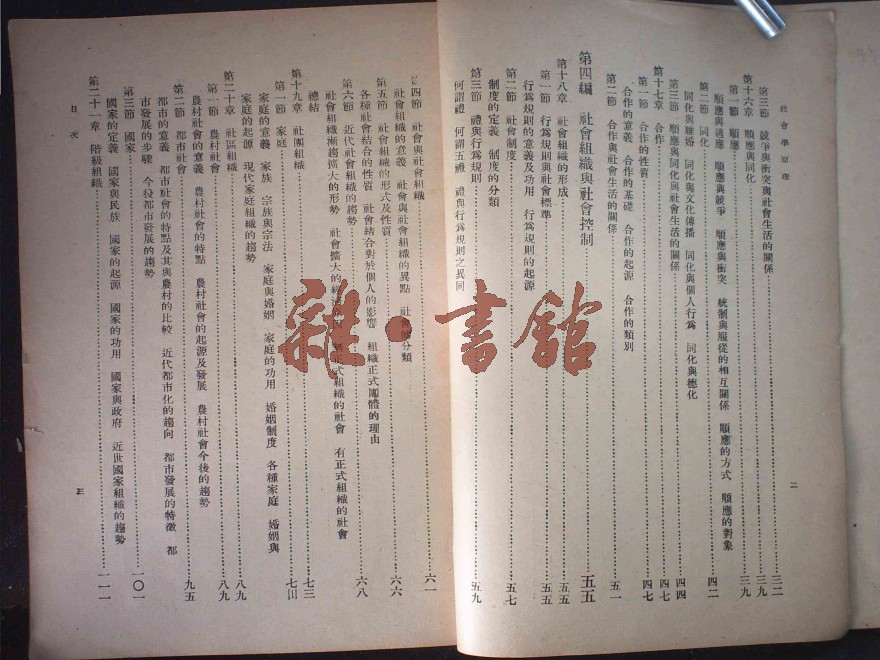 社會學原理
二
第三節 競爭與衝突與社會生活的關係……三二
第十六章 順應與同化……三九
第一節 順應……三九
順應與適應 順應與競爭 順應與衝突 統制與服從的相互關係 順應的方式 順應的對象
第二節 同化……四二
同化與雜婚 同化與文化傳播 同化與個人行為 同化與德化
第三節 順應與同化與社會生活的關係……四四
第十七章 合作……四七
第一節 合作的性質……四七
合作的意義 合作的基礎 合作的起源 合作的類別
第二節 合作與社會生活的關係……五一
第四編 社會組織與社會控制……五五
第十八章 社會組織的形成……五五
第一節 行為規則與社會標準……五五
行為規則的意義及功用 行為規則的起源
第二節 社會制度……五七
制度的定義 制度的分類
第三節 禮與行為規則……五九
何謂禮 何謂五禮 禮與行為規則之異同
第四節 社會與社會組織……六一
社會組織的意義 社會與社會組織的異點 社會的分類
第五節 社會組織的形式及性質……六六
各種社會結合的性質 社會結合對於個人的影響 組織正式團體的理由
第六節 近代社會組織的趨勢……六八
社會組織漸趨擴大的形勢 社會擴大的 正式組織的社會 有正式組織的社會
總結……七三
第十九章 社團組織
第一節 家庭
家庭的意義 家族 宗族與宗法 家庭與婚姻 家庭的功用 婚姻制度 各種家庭 婚姻與
家庭的起源 現代家庭組織的趨勢
第二十章 社區組織……八九
第一節 農村社會……八九
農村社會的意義 農村社會的特點 農村社會的起源及發展 農村社會今後的趨勢
第二節 都市社會……九五
都市的意義 都市社會的特點及其與農村的比較 近代都市化的趨向 都市發展的特徵 都
市發展的步驟 今後都市發展的趨勢
第三節 國家……一〇一
國家的定義 國家與民族 國家的起源 國家的功用 國家與政府 近世國家組織的趨勢
第二十一章 階級組織……一一一
目次
三